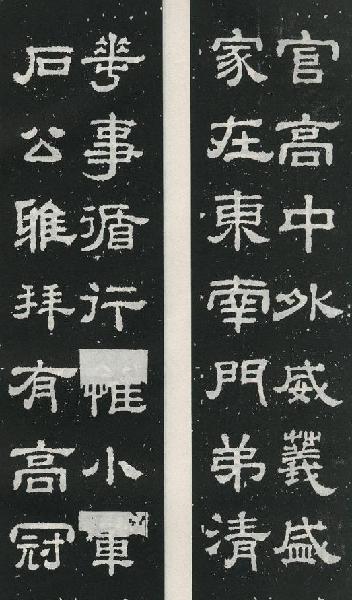 官高中外威義盛
家在東南門弟清
華事循行惟小車
石公雅拜有高冠